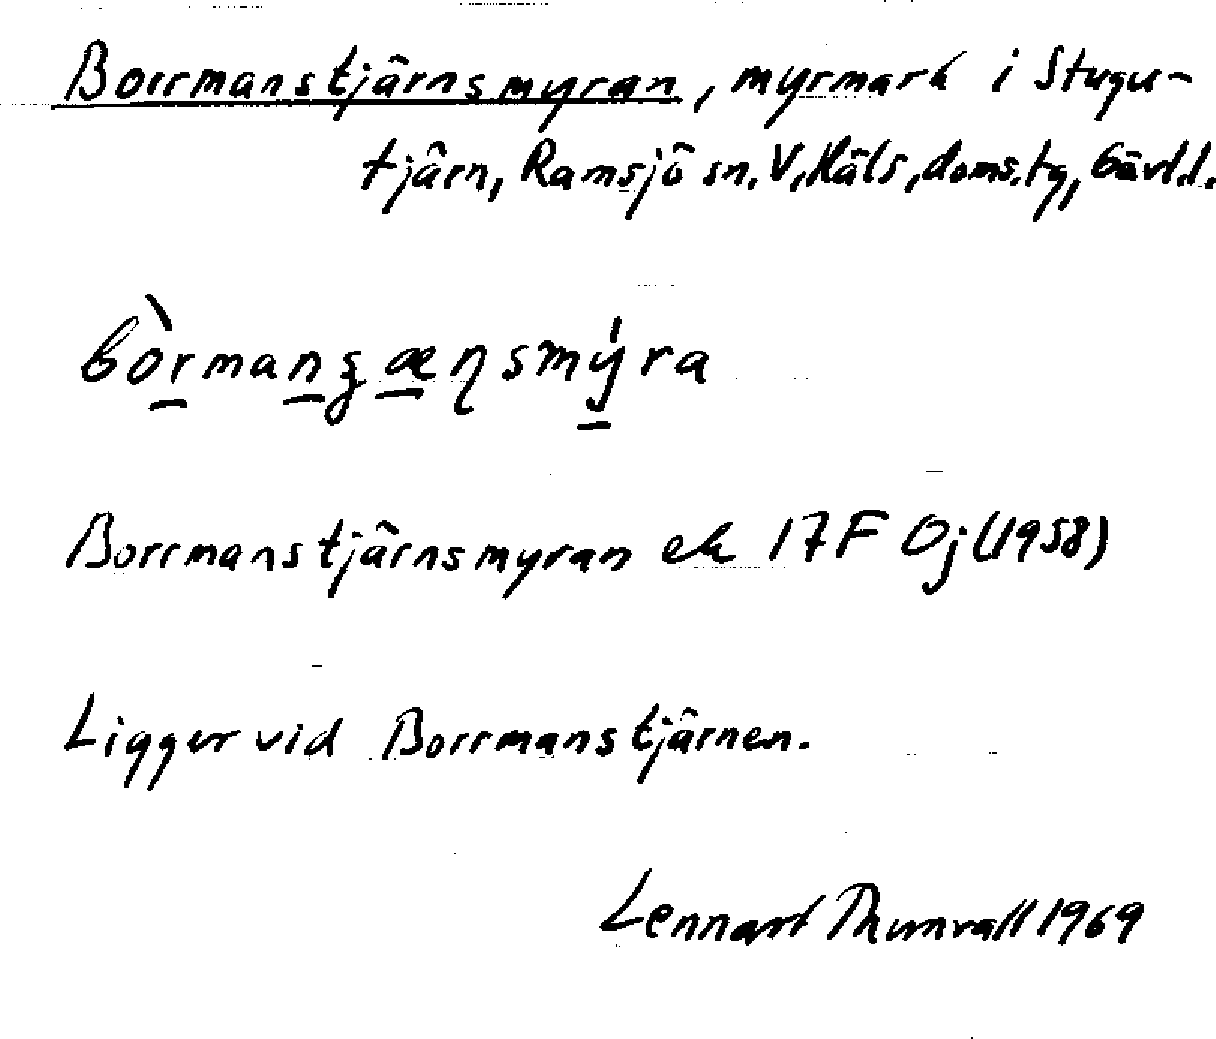 Borrmanstjärnsmyran, myrmark i Stugu-
tjärn, Ramsjö sn. V. Häls. doms. tg, Gävl.l.
bòrmanʂæɳsmýra
Borrmanstjärnsmyran ek 17F 0j (1958)
Ligger vid Borrmanstjärnen.
Lennart Thunvall 1969